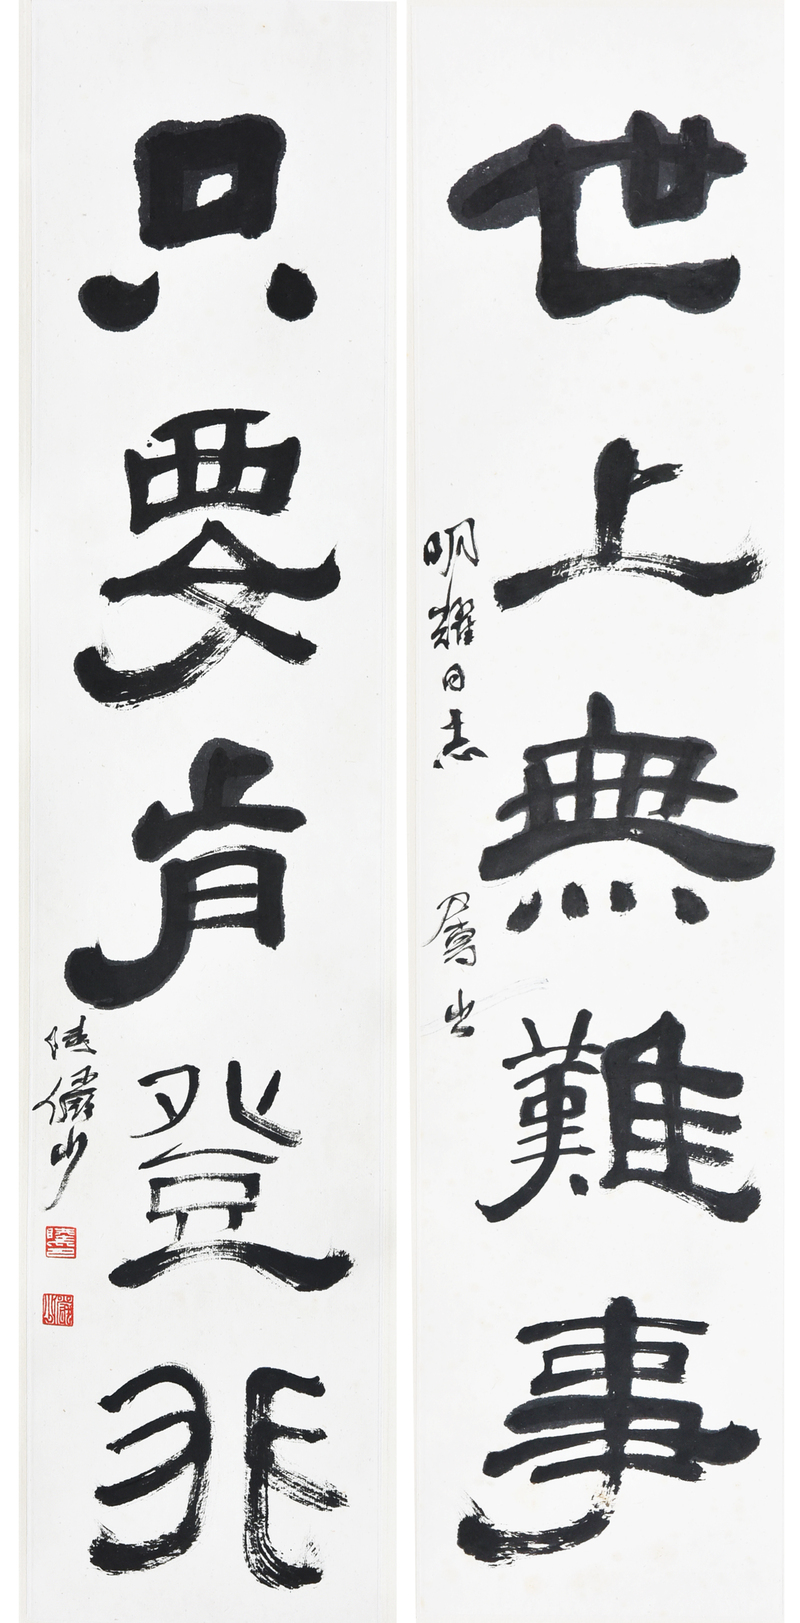 世上無難事
明耀同志 屬书
只要肯登非
陸儼少